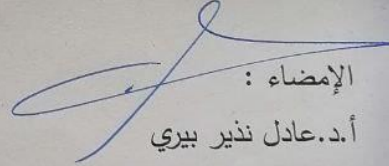 الإمضاء :
أ.د.عادل نذير بيري